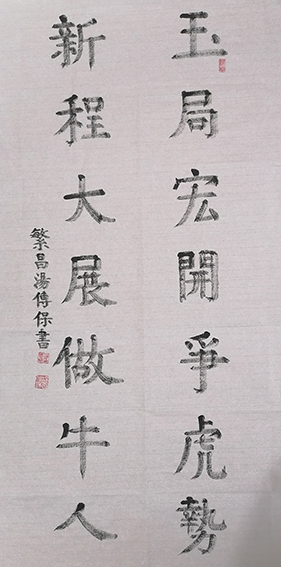 玉局宏開爭虎勢
新程大展做牛人
繁昌湯傳保書